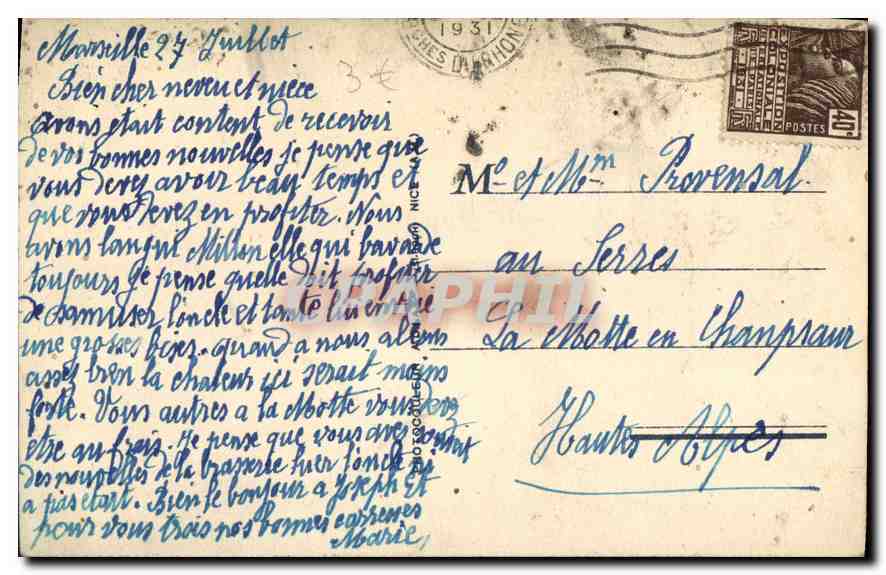 Marseille 27 Juillet
Bien cher neveu et niece
avons était content de recevoir
de vos bonnes nouvelles je pense que
vous devez avoir beau temps et
que vous devez en profiter. Nous
avons langui elle qui bavarde
toujours je pense quelle doit profiter
de samuser l'oncle et tante lui envoie
une grosses bises. quand a nous allons
assez bien la chaleur ici serait moins
forte. Vous autres a la Motte vous devez
etre au frais. Je pense que vous avez
des nouvelles de la brasserie hier l'oncle
a pas etait. Bien le bonjour a Joseph et
pour vous trois nos bonnes carresses
Marie,
3€
1931
BCHES DU RHONE
EXPOSITION
COLONIALE
INTERNATIONALE
PARIS 1931
POSTES
40c
Me et Mm Provensal
au Serres
La Motte en Champsaur
Hautes Alpes
PHOTOCOULEUR
NICE
CARAPHIL